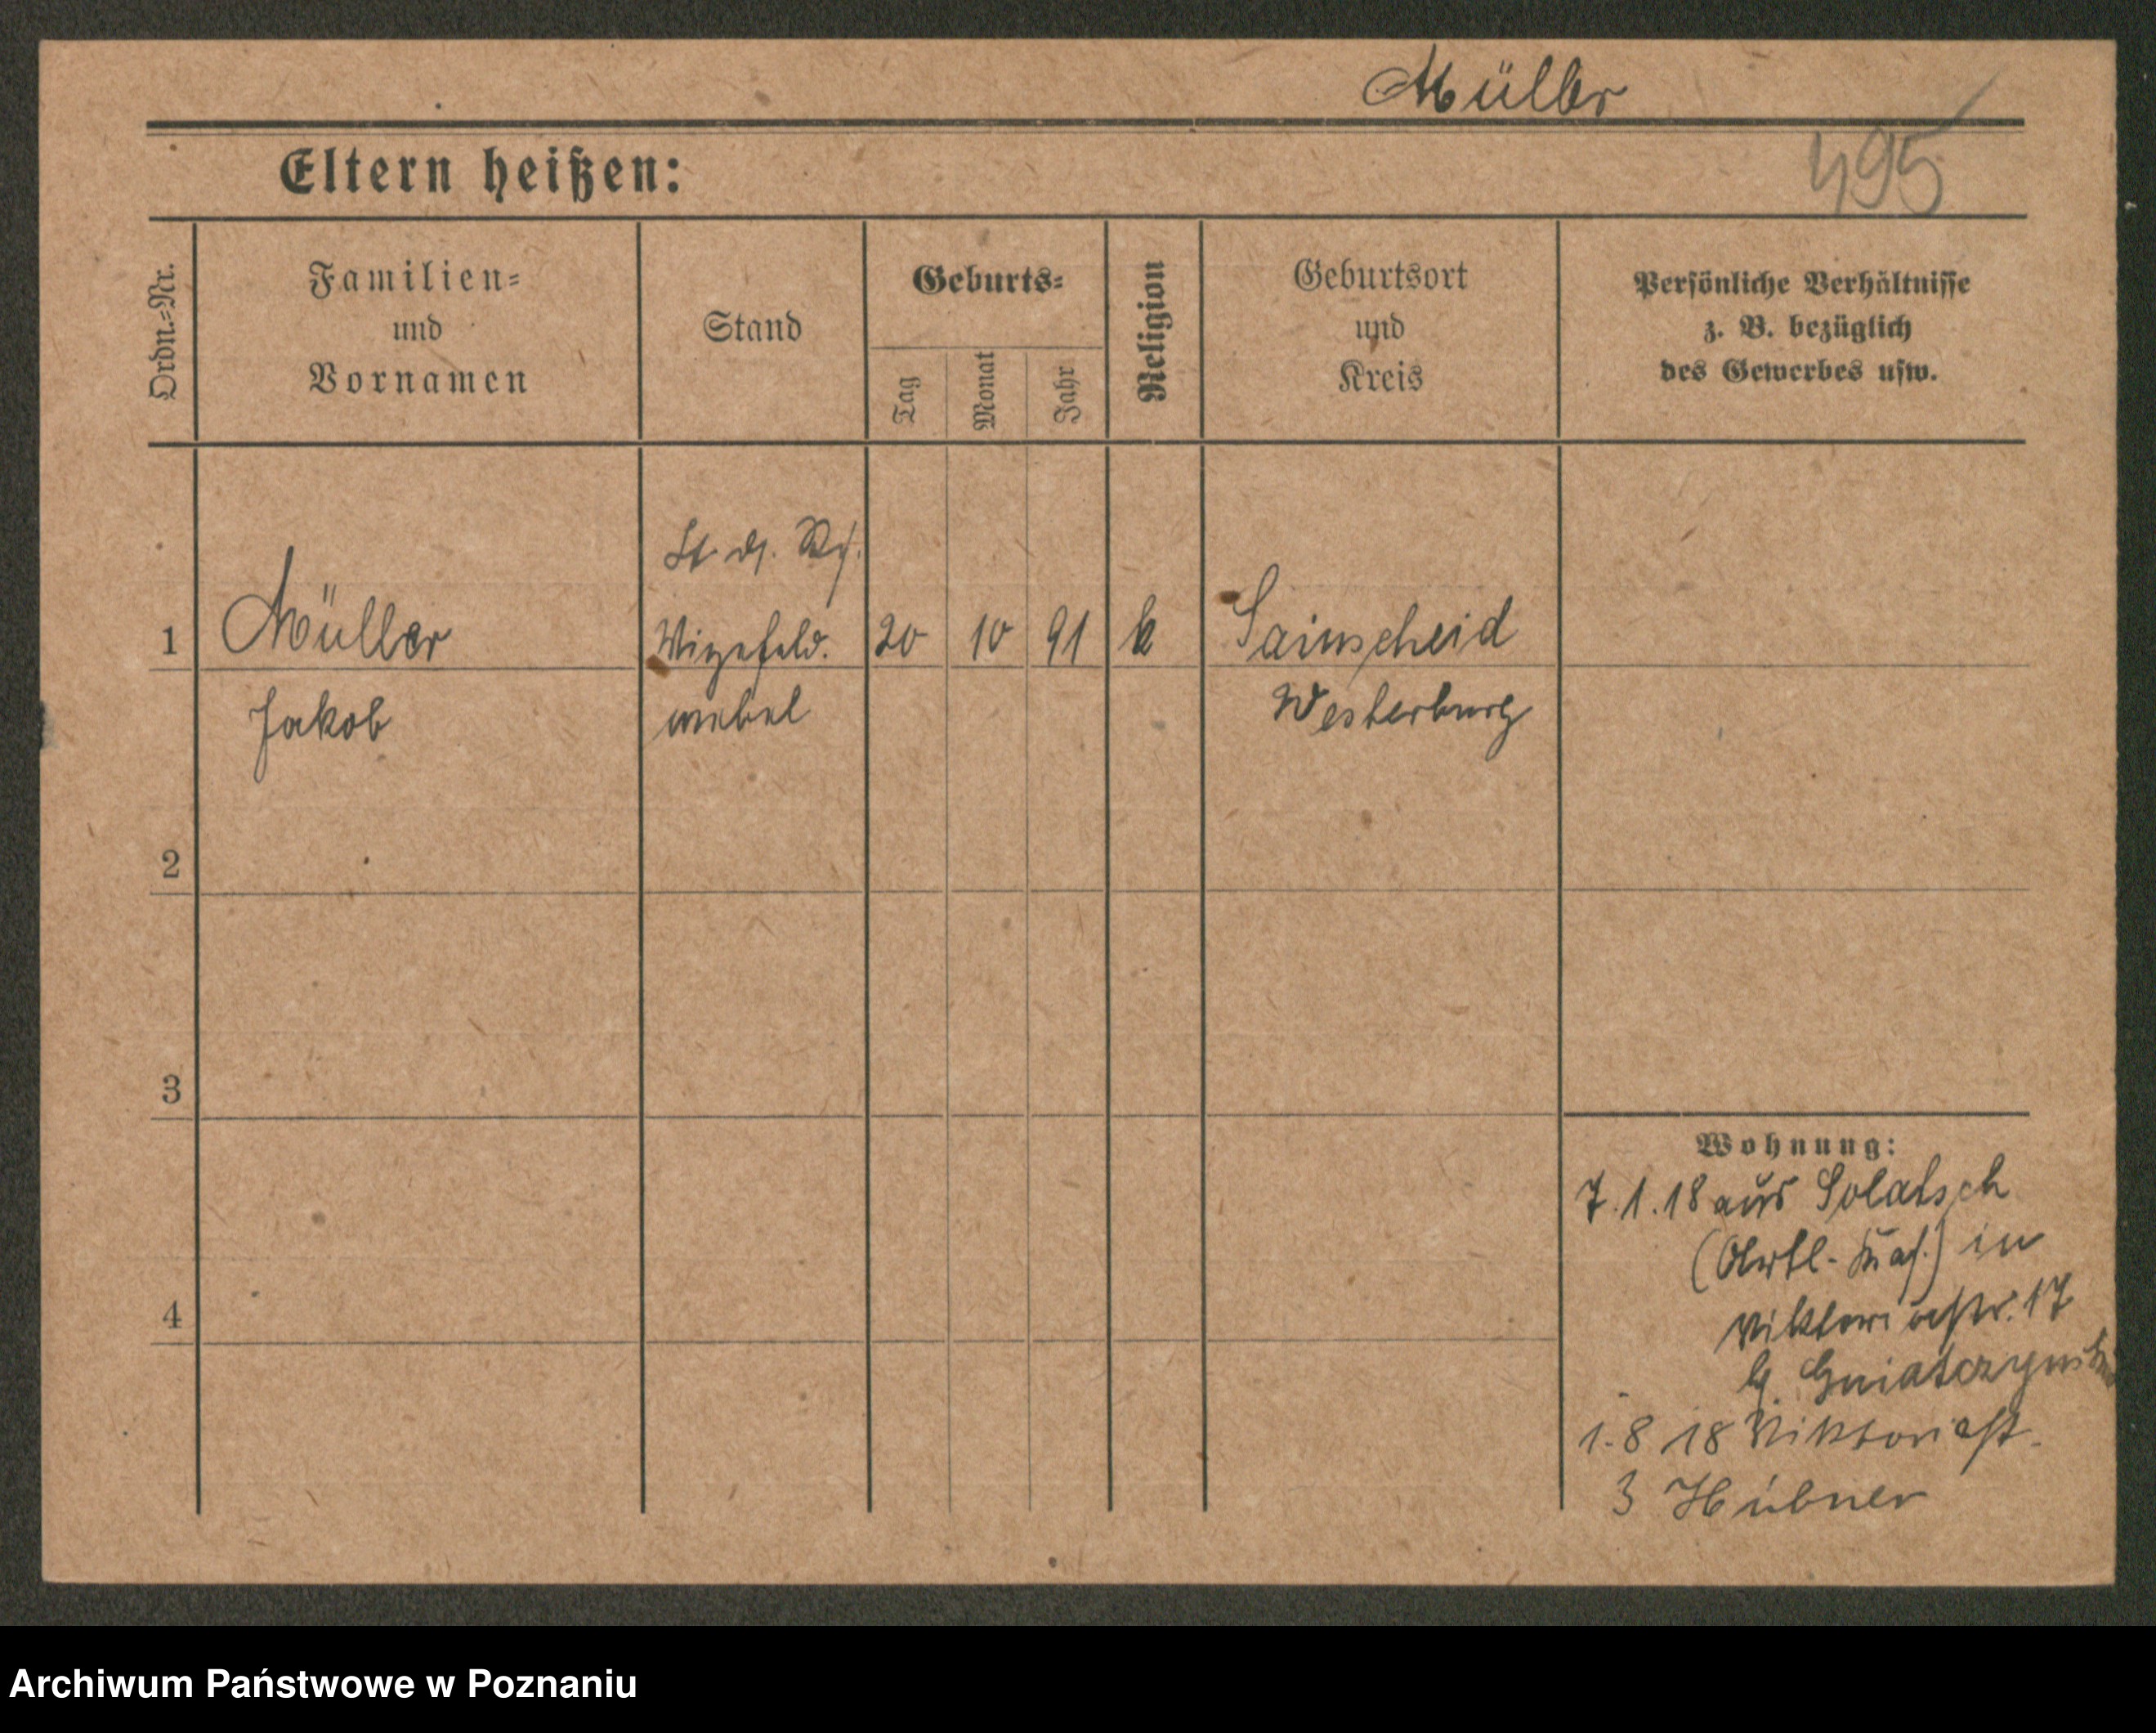 Müller
495
Eltern heißen:
Ordn.=Nr.
Familien=
und
Vornamen
Stand
Geburts=
Tag
Monat
Jahr
Religion
Geburtsort
und
Kreis
Persönliche Verhältnisse
z. B. bezüglich
des Gewerbes usw.
Lt. d. Rs.
1 Müller Vizefeld. 20 10 91 k Sainscheid
Jakob webel Westerburg
2
3
4
Wohnung:
7.1.18 aus Solatsch
in
Viktoriastr. 17
b. Gniatczynski
1.8 18 Viktoriastr.
3 Hübner
Archiwum Państwowe w Poznaniu